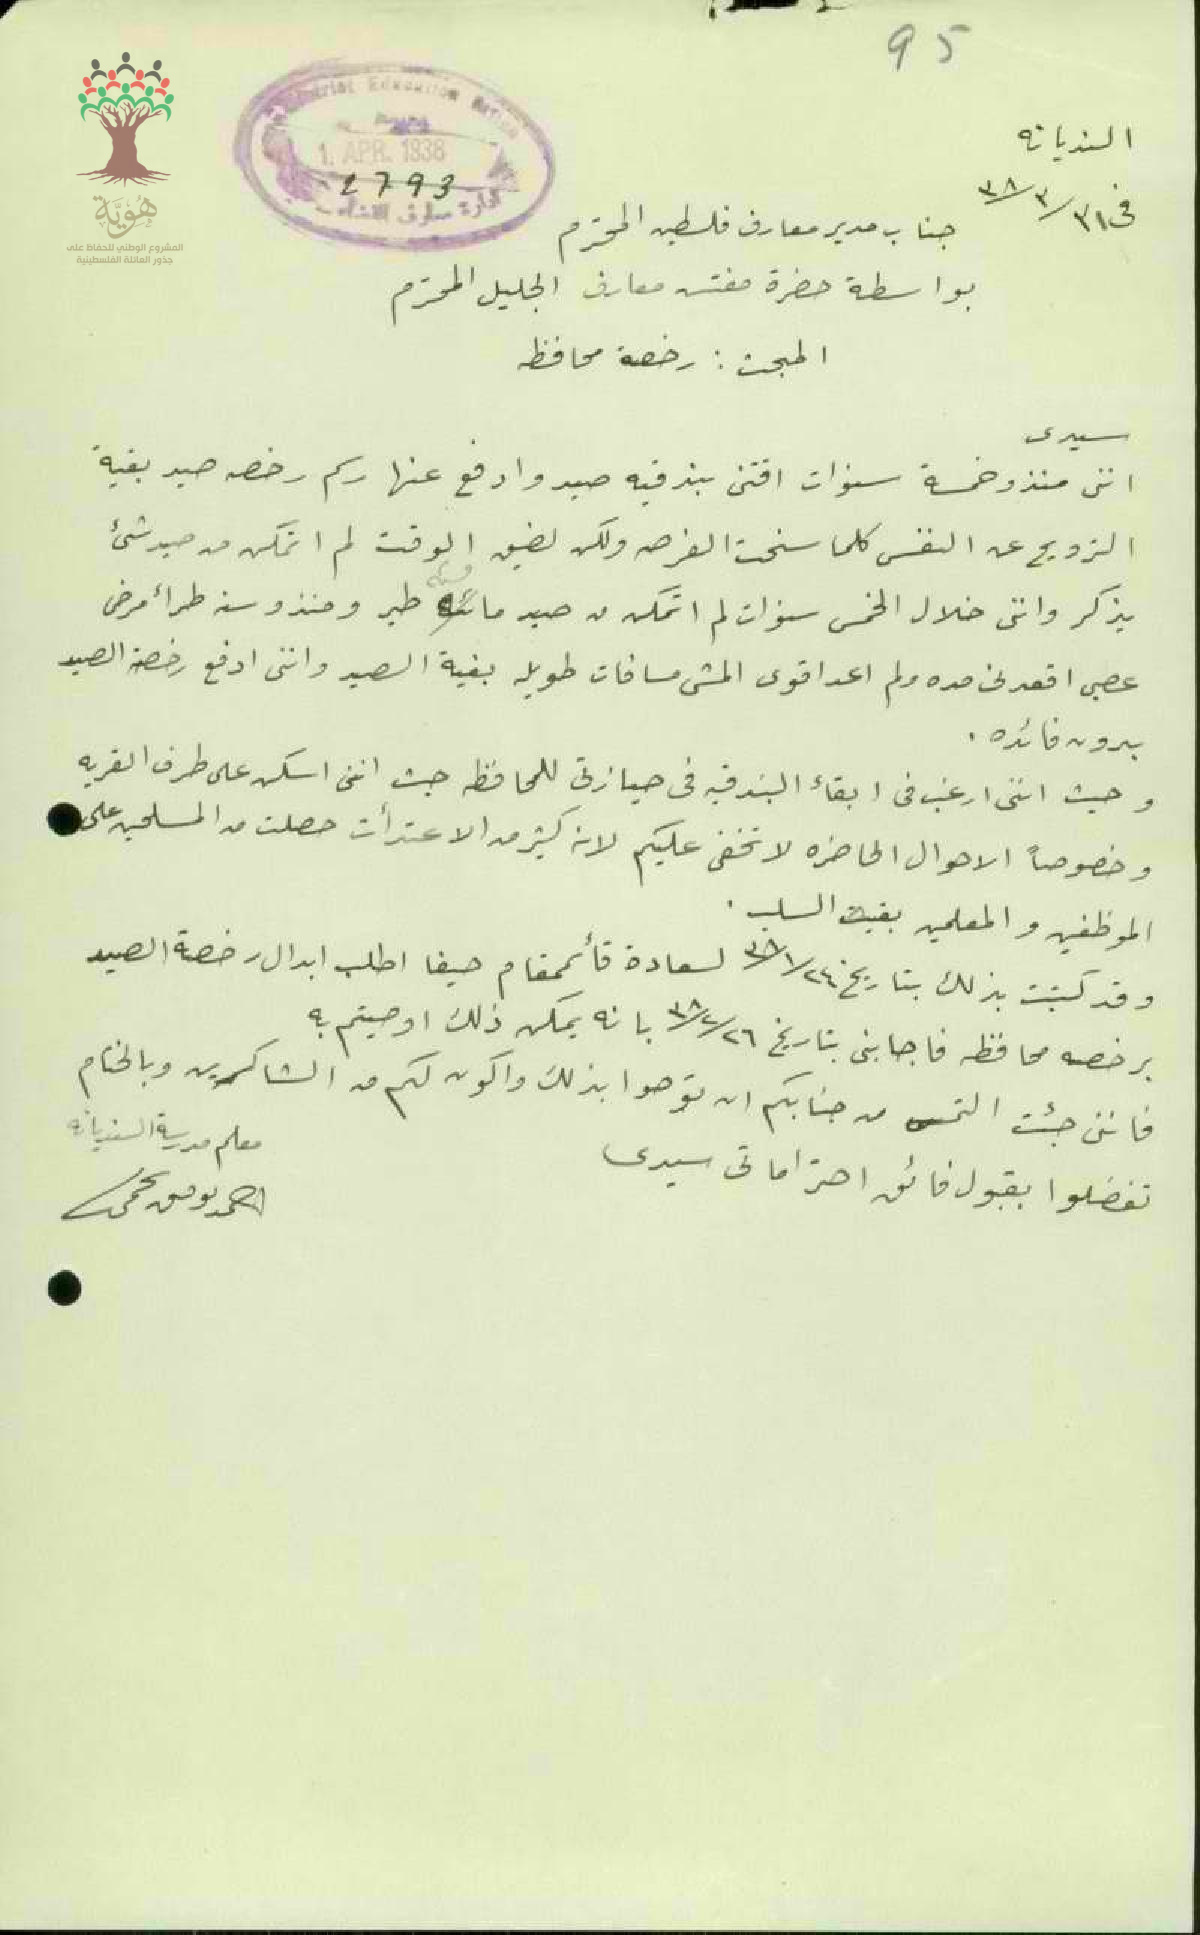 95
District Education Office
1. APR. 1938
2793
ادارة معارف اللواء
هُوِيَّة
المشروع الوطني للحفاظ على
جذور العائلة الفلسطينية
السنديانه
في ٣١/٣/٣٨
جناب مدير معارف فلسطين المحترم
بواسطة حضرة مفتش معارف الجليل المحترم
المبحث : رخصة محافظه
سيدي
انني منذ وخمسة سنوات اقتني بندقيه صيد وادفع عنها رسم رخصه صيد بغية
الترويح عن النفس كلما سنحت الفرصه ولكن لضيق الوقت لم اتمكن من صيد شئ
يذكر وانني خلال الخمس سنوات لم اتمكن من صيد طير ومنذ وسنه طرأ مرض
عصبي اقعدني مده ولم اعد اقوى المشي مسافات طويله بغية الصيد وانني ادفع رخصة الصيد
بدون فائده .
وحيث انني ارغب في ابقاء البندقيه في حيازتي للمحافظه حيث انني اسكن على طرف القريه
وخصوصاً الاحوال الحاضره لا تخفى عليكم لانه كثير من الاعتدأت حصلت من المسلحين على
الموظفين والمعلمين بغية السلب .
وقد كتبت بذلك بتاريخ ٢٤/١/٣٨ لسعادة قائممقام حيفا اطلب ابدال رخصة الصيد
برخصه محافظه فاجابني بتاريخ ٢٦/٢/٣٨ بانه يمكن ذلك اوصيتم به
فانني جئت التمس من جنابكم ان توصوا بذلك واكون لكم من الشاكرين وبالختام
تفضلوا بقبول فائق احتراماتي سيدي
معلم مدرسة السنديانه
احمد توفيق